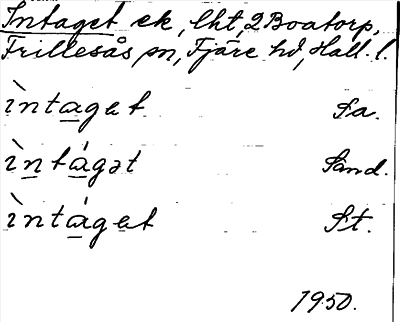 Intaget ek, lht, 2 Boatorp,
Frillesås sn, Fjäre hd, Hall. l.
ìntaget Sa.
ìntágət Sand.
ìntáget St.
1950.